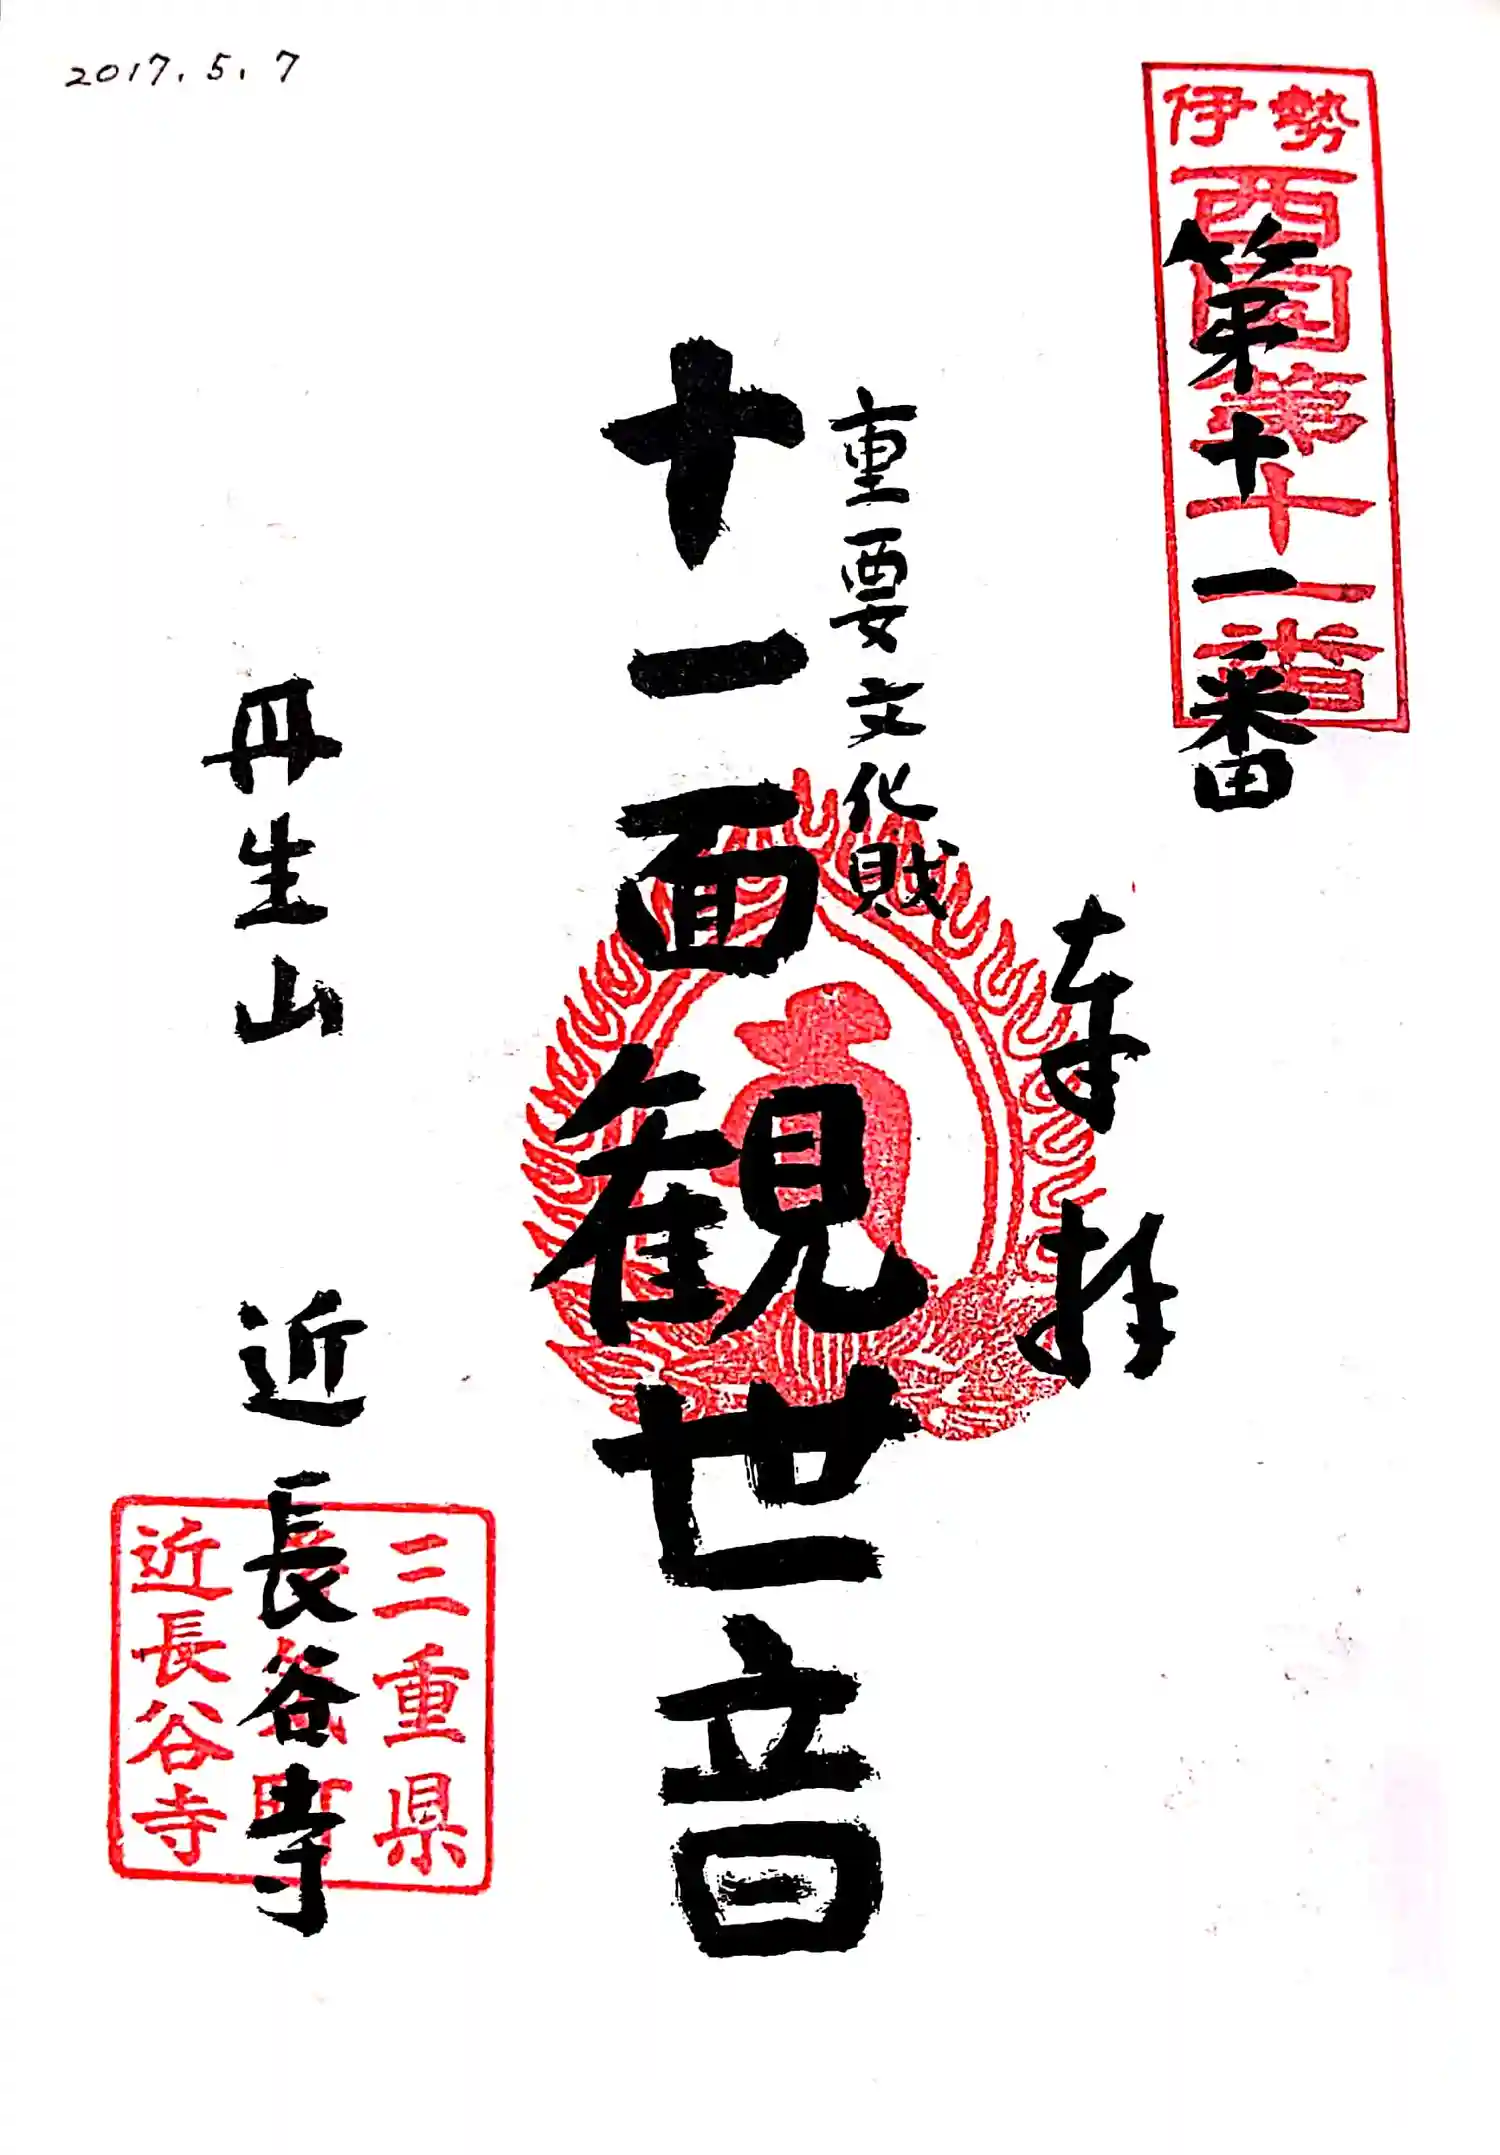 2017.5.7
伊勢
西国第十一番
第十一番
奉拝
重要文化財
十一面観世音
丹生山
近長谷寺
三重県
近長谷寺